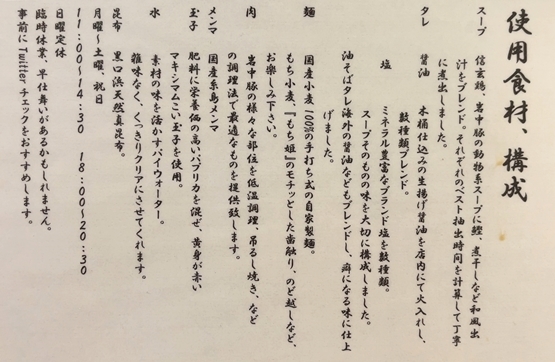 使用食材、構成
スープ　信玄鶏、岩中豚の動物系スープに鰹、煮干しなど和風出
汁をブレンド。それぞれのベスト抽出時間を計算して丁寧
に煮出しました。
タレ　醤油　木桶仕込みの生揚げ醤油を店内にて火入れし、
数種類ブレンド。
塩　ミネラル豊富なブランド塩を数種類。
スープそのものの味を大切に構成しました。
油そばタレ海外の醤油などもブレンドし、癖になる味に仕上
げました。
麺　国産小麦100%の手打ち式の自家製麺。
もち小麦、『もち姫』のモチッとした歯触り、のど越しなど、
お楽しみ下さい。
肉　岩中豚の様々な部位を低温調理、吊るし焼き、など
の調理法で最適なものを提供致します。
メンマ　国産糸島メンマ
玉子　肥料に栄養価の高いパプリカを混ぜ、黄身が赤い
マキシマムこい玉子を使用。
水　素材の味を活かすパイウォーター。
雑味なく、くっきりクリアにさせてくれます。
昆布　黒口浜天然真昆布。
月曜〜土曜、祝日
11:00~14:30　18:00~20:30
日曜定休
臨時休業、早仕舞いがあるかもしれません。
事前にTwitterチェックをおすすめします。